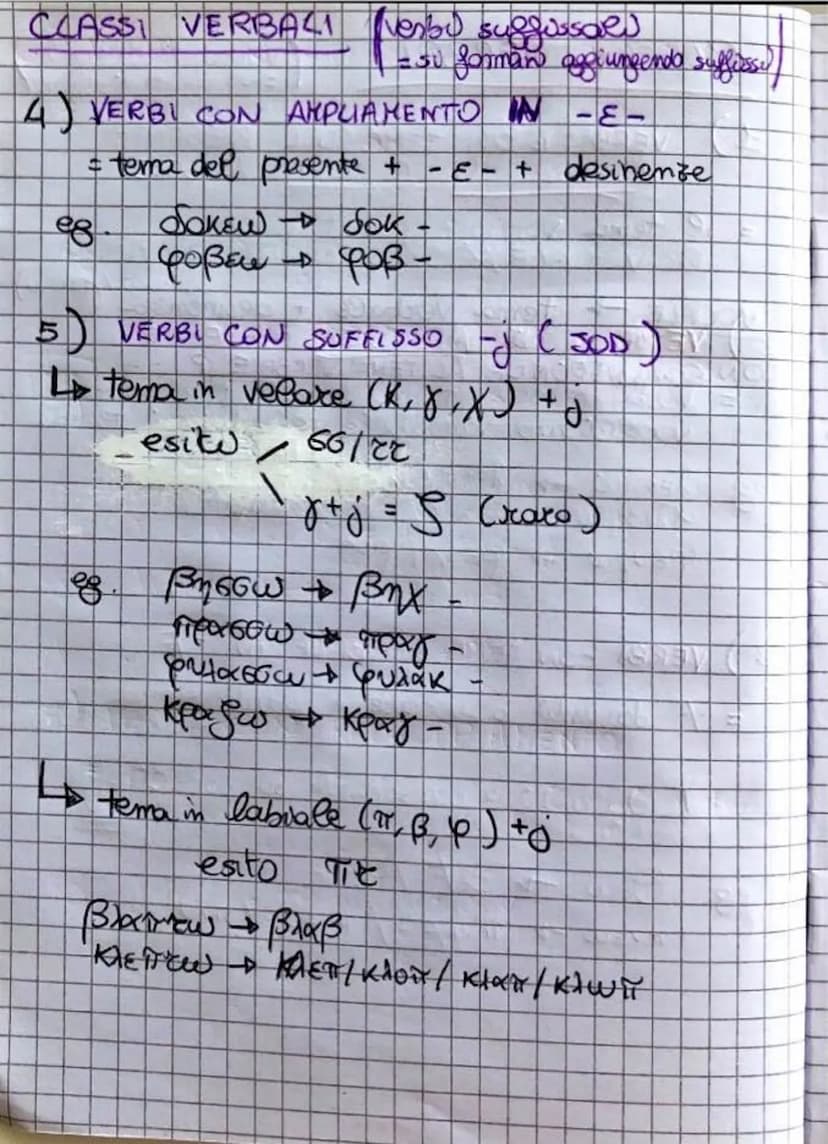 CLASSI VERBALI (verbi suffissali
= si formano aggiungendo suffissi)
4) VERBI CON AMPLIAMENTO IN -ε-
= tema del presente + -ε- + desinenze
eg. δοκεω → δοκ -
φοβεω → φοβ -
5) VERBI CON SUFFISSO -j (JOD)
↳ tema in velare (κ, γ, χ) + j
esito σσ/ττ
γ+j = ζ (raro)
eg. βησσω → βηχ -
πρασσω → πραγ -
φυλασσω → φυλακ -
κραζω → κραγ -
↳ tema in labiale (π, β, φ) + j
esito πτ
βλαπτω → βλαβ
κλεπτω → κλεπ/κλοπ/κλαπ/κλωπ